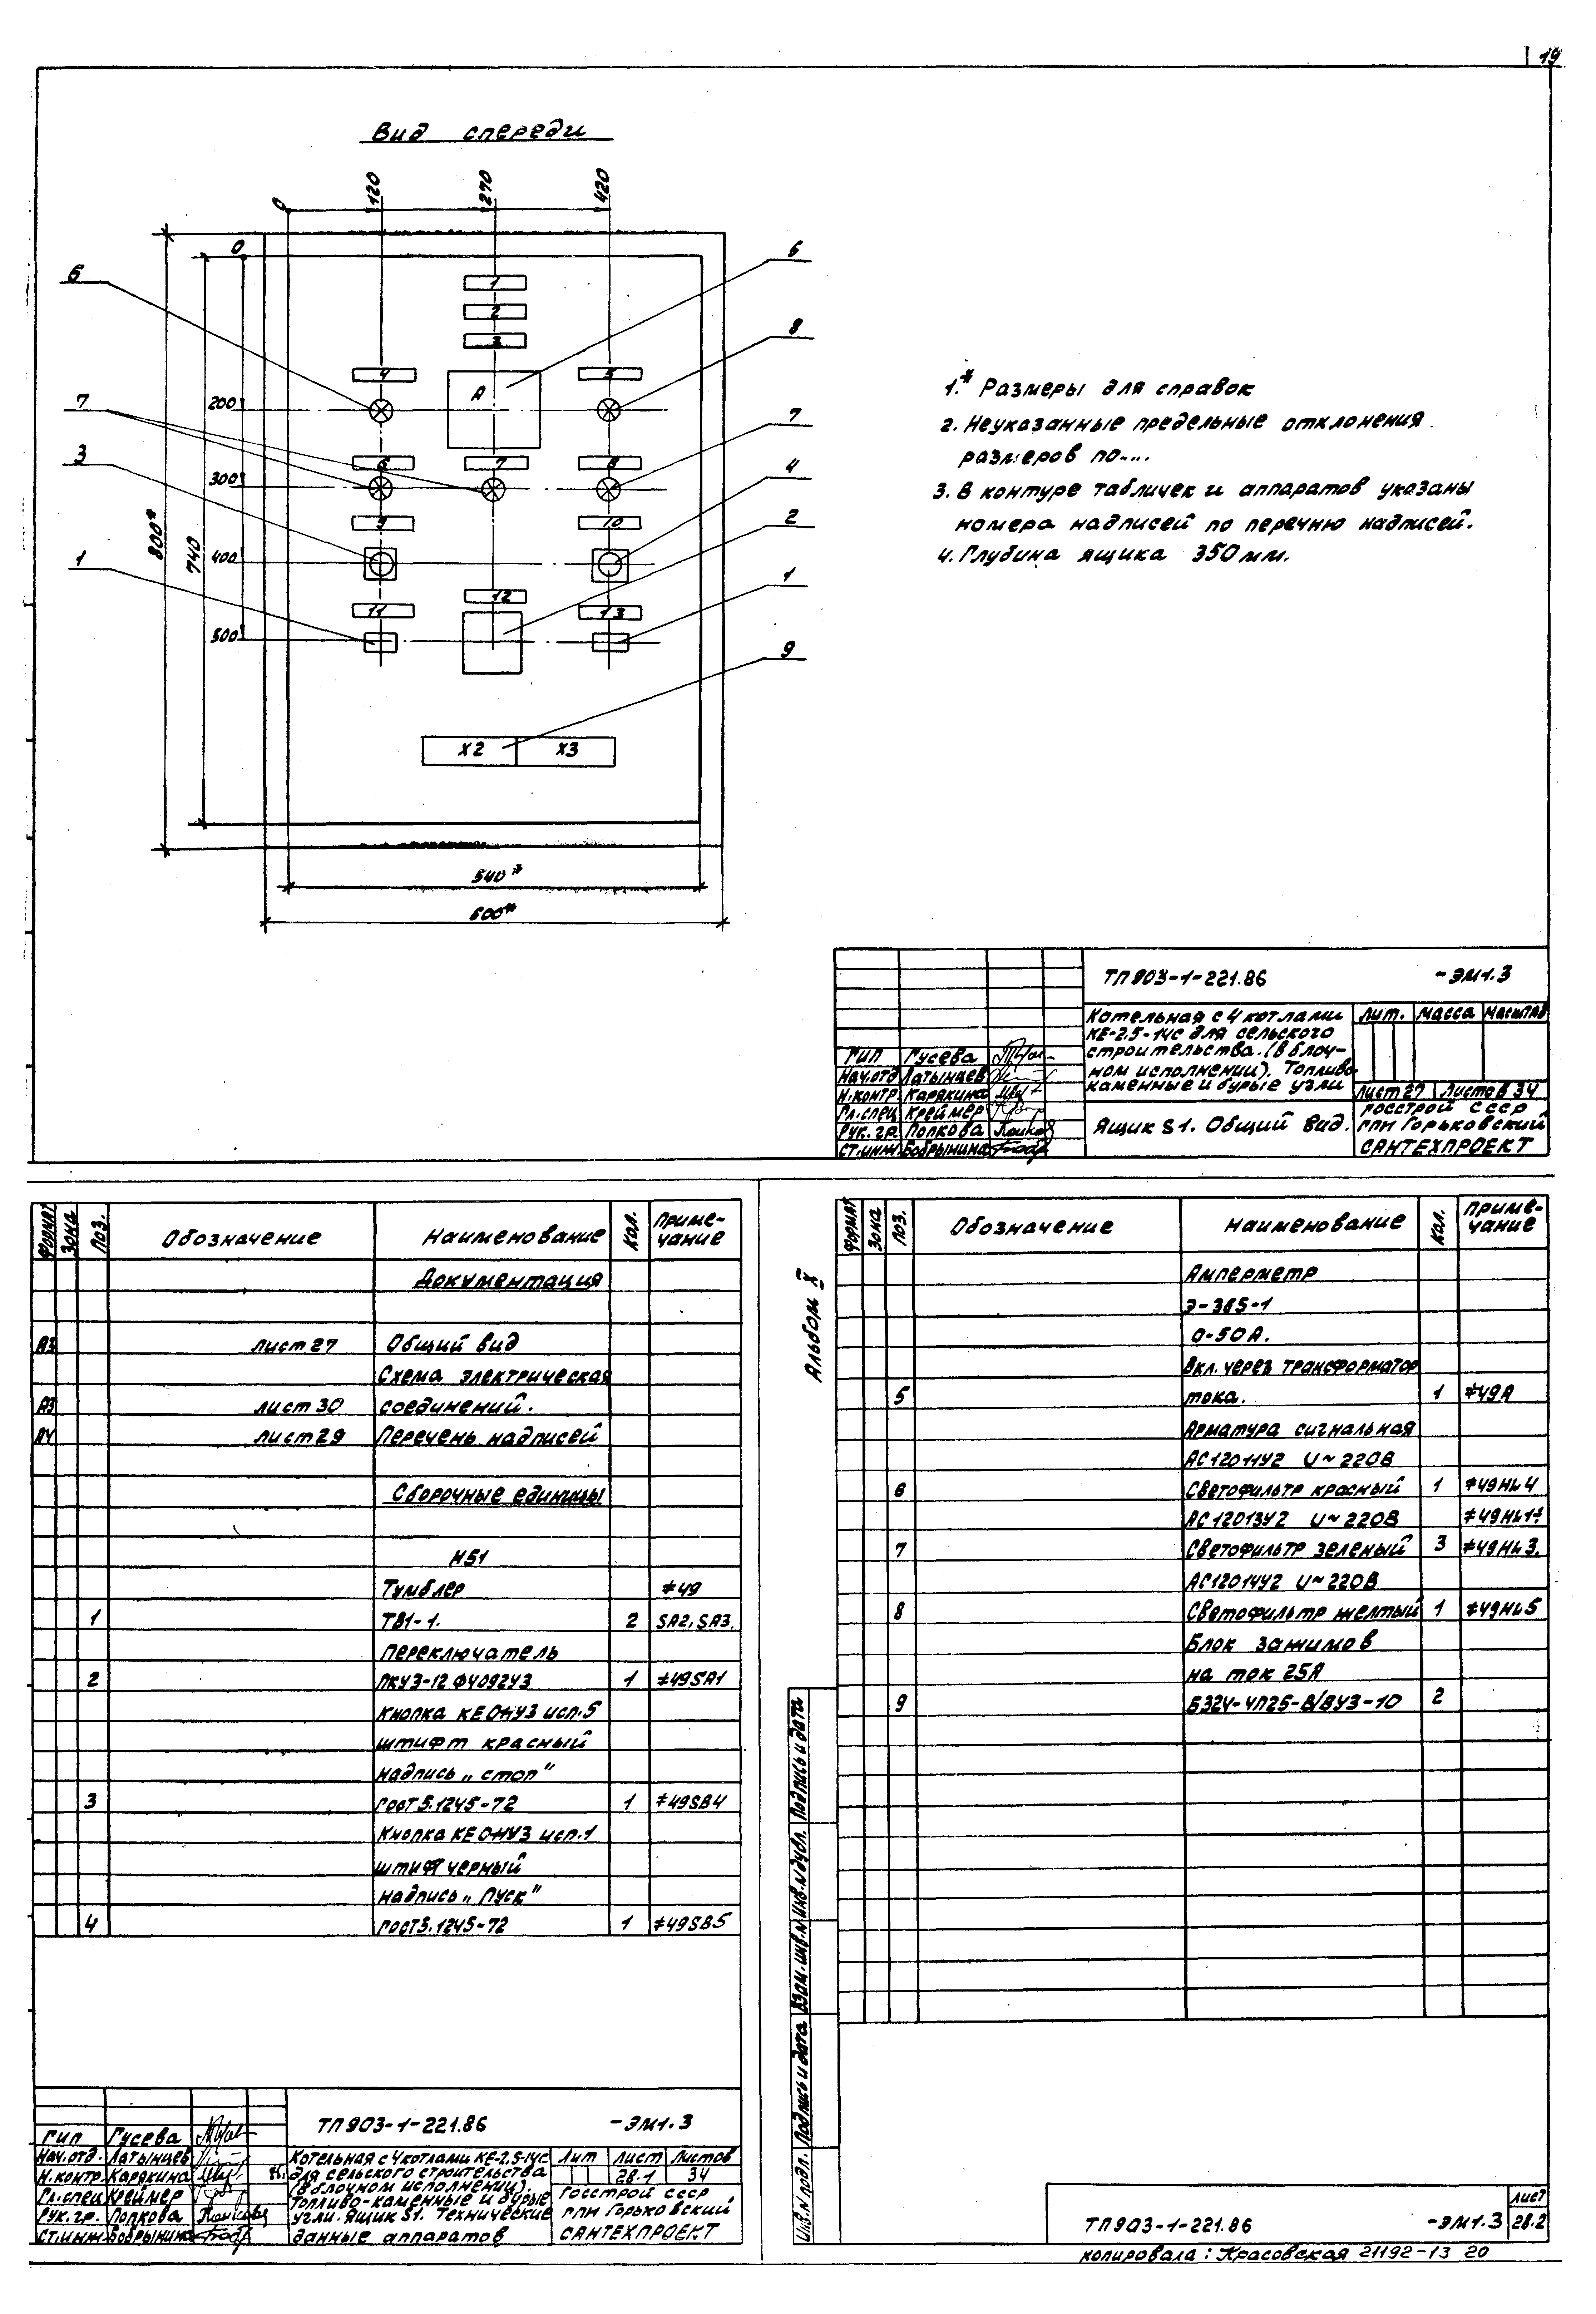 19
Вид спереди
0
120
270
420
0
800*
740
200
300
400
500
1
2
3
4
A
5
6
7
8
9
10
11
12
13
X2
X3
540*
600*
6
7
3
1
6
8
7
4
2
1
9
1.* Размеры для справок
2. Неуказанные предельные отклонения
размеров по....
3. В контуре табличек и аппаратов указаны
номера надписей по перечню надписей.
4. Глубина ящика 350мм.
ТП903-1-221.86 -ЭМ1.3
Котельная с 4 котлами
КЕ-2,5-14С для сельского
строительства. (в блоч-
ном исполнении). Топливо-
каменные и бурые угли
Лит. Масса Масштаб
Лист 27 Листов 34
ГИП Гусева
Нач.отд Латынцев
Н.контр. Карякина
Гл.спец Креймер
Рук. гр. Попкова
Ст.инж. Бобрынина
Ящик S1. Общий вид.
Госстрой СССР
ГПИ Горьковский
САНТЕХПРОЕКТ
Формат Зона Поз. Обозначение Наименование Кол. Приме-
чание
Документация
А3 лист 27 Общий вид
Схема электрическая
А3 лист 30 соединений.
А4 лист 29 Перечень надписей
Сборочные единицы
Н51
Тумблер ≠49
1 ТВ1-1. 2 SA2, SA3.
Переключатель
2 ПКУ3-12Ф4092У3 1 ≠49SA1
Кнопка КЕ011У3 исп.5
штифт красный
надпись „стоп"
3 ГОСТ 5.1245-72 1 ≠49SB4
Кнопка КЕ011У3 исп.1
штифт черный
надпись „Пуск"
4 ГОСТ5.1245-72 1 ≠49SB5
ТП903-1-221.86 -ЭМ1.3
ГИП Гусева
Нач.отд. Латынцев
Н.контр. Карякина
Гл.спец Креймер
Рук. гр. Попкова
Ст.инж. Бобрынина
Котельная с 4 котлами КЕ-2,5-14С
для сельского строительства
(в блочном исполнении).
Топливо-каменные и бурые
угли. Ящик S1. Технические
данные аппаратов
Лит Лист Листов
28.1 34
Госстрой СССР
ГПИ Горьковский
САНТЕХПРОЕКТ
Альбом X
Формат Зона Поз. Обозначение Наименование Кол. Приме-
чание
Амперметр
Э-365-1
0-50А.
Вкл. через трансформатор
5 тока. 1 ≠49А
Арматура сигнальная
АС12011У2 U~220В
6 Светофильтр красный 1 ≠49HL4
АС12013У2 U~220В ≠49HL1÷
7 Светофильтр зеленый 3 ≠49HL3.
АС12014У2 U~220В
8 Светофильтр желтый 1 ≠49HL5
Блок зажимов
на ток 25А
9 БЗ24-4П25-В/ВУ3-10 2
Инв.N подл. Подпись и дата Взам. инв.N Инв.N дубл. Подпись и дата
ТП903-1-221.86 -ЭМ1.3
Лист
28.2
Копировала: Красовская 21192-13 20